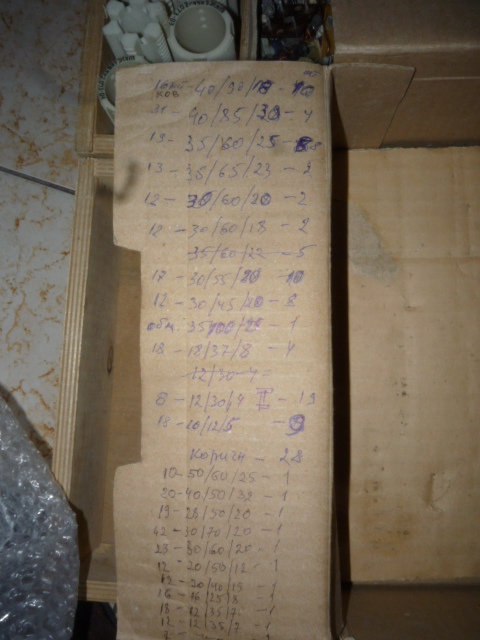 40/85/30 - 4
19 - 35/60/25 -
13 - 35/65/23 - 2
12 - 30/60/20 - 2
12 - 30/60/18 - 2
35/60/22 - 5
17 - 30/55/20 - 10
12 - 30/45/20 - 8
35/100/25 - 1
18 - 18/37/8 - 4
12/30 4
6 - 12/30/4 II - 13
18 - 10/12/5 - 9
Коричн - 28
10 - 50/60/25 - 1
20 - 40/50/32 - 1
19 - 28/50/20 - 1
42 - 30/70/20 - 1
23 - 30/60/20 - 1
12 - 20/50/12 - 1
12 - 20/40/15 - 1
16 - 16/25/8 - 1
18 - 12/35/7 - 1
12 - 12/35/7 - 1